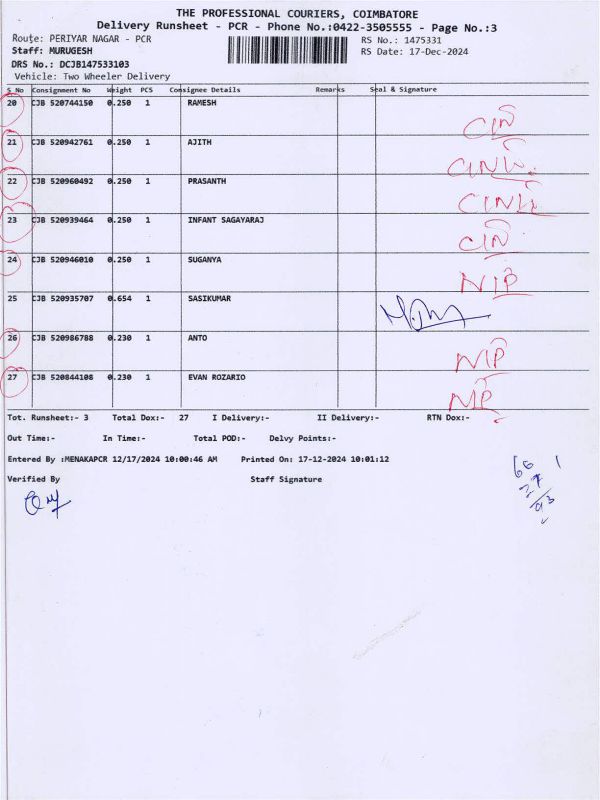 THE PROFESSIONAL COURIERS, COIMBATORE
Delivery Runsheet - PCR - Phone No.:0422-3505555 - Page No.:3
Route: PERIYAR NAGAR - PCR
RS No.: 1475331
Staff: MURUGESH
RS Date: 17-Dec-2024
DRS No.: DCJB147533103
Vehicle: Two Wheeler Delivery
S No Consignment No Weight PCS Consignee Details Remarks Seal & Signature
20 CJB 520744150 0.250 1 RAMESH
CIN
21 CJB 520942761 0.250 1 AJITH
22 CJB 520960492 0.250 1 PRASANTH
23 CJB 520939464 0.250 1 INFANT SAGAYARAJ
CIN
24 CJB 520946010 0.250 1 SUGANYA
NIP
25 CJB 520935707 0.654 1 SASIKUMAR
26 CJB 520986788 0.230 1 ANTO
NIP
27 CJB 520844108 0.230 1 EVAN ROZARIO
NIP
Tot. Runsheet:- 3 Total Dox:- 27 I Delivery:- II Delivery:- RTN Dox:-
Out Time:- In Time:- Total POD:- Delvy Points:-
Entered By :MENAKAPCR 12/17/2024 10:00:46 AM Printed On: 17-12-2024 10:01:12
Verified By Staff Signature